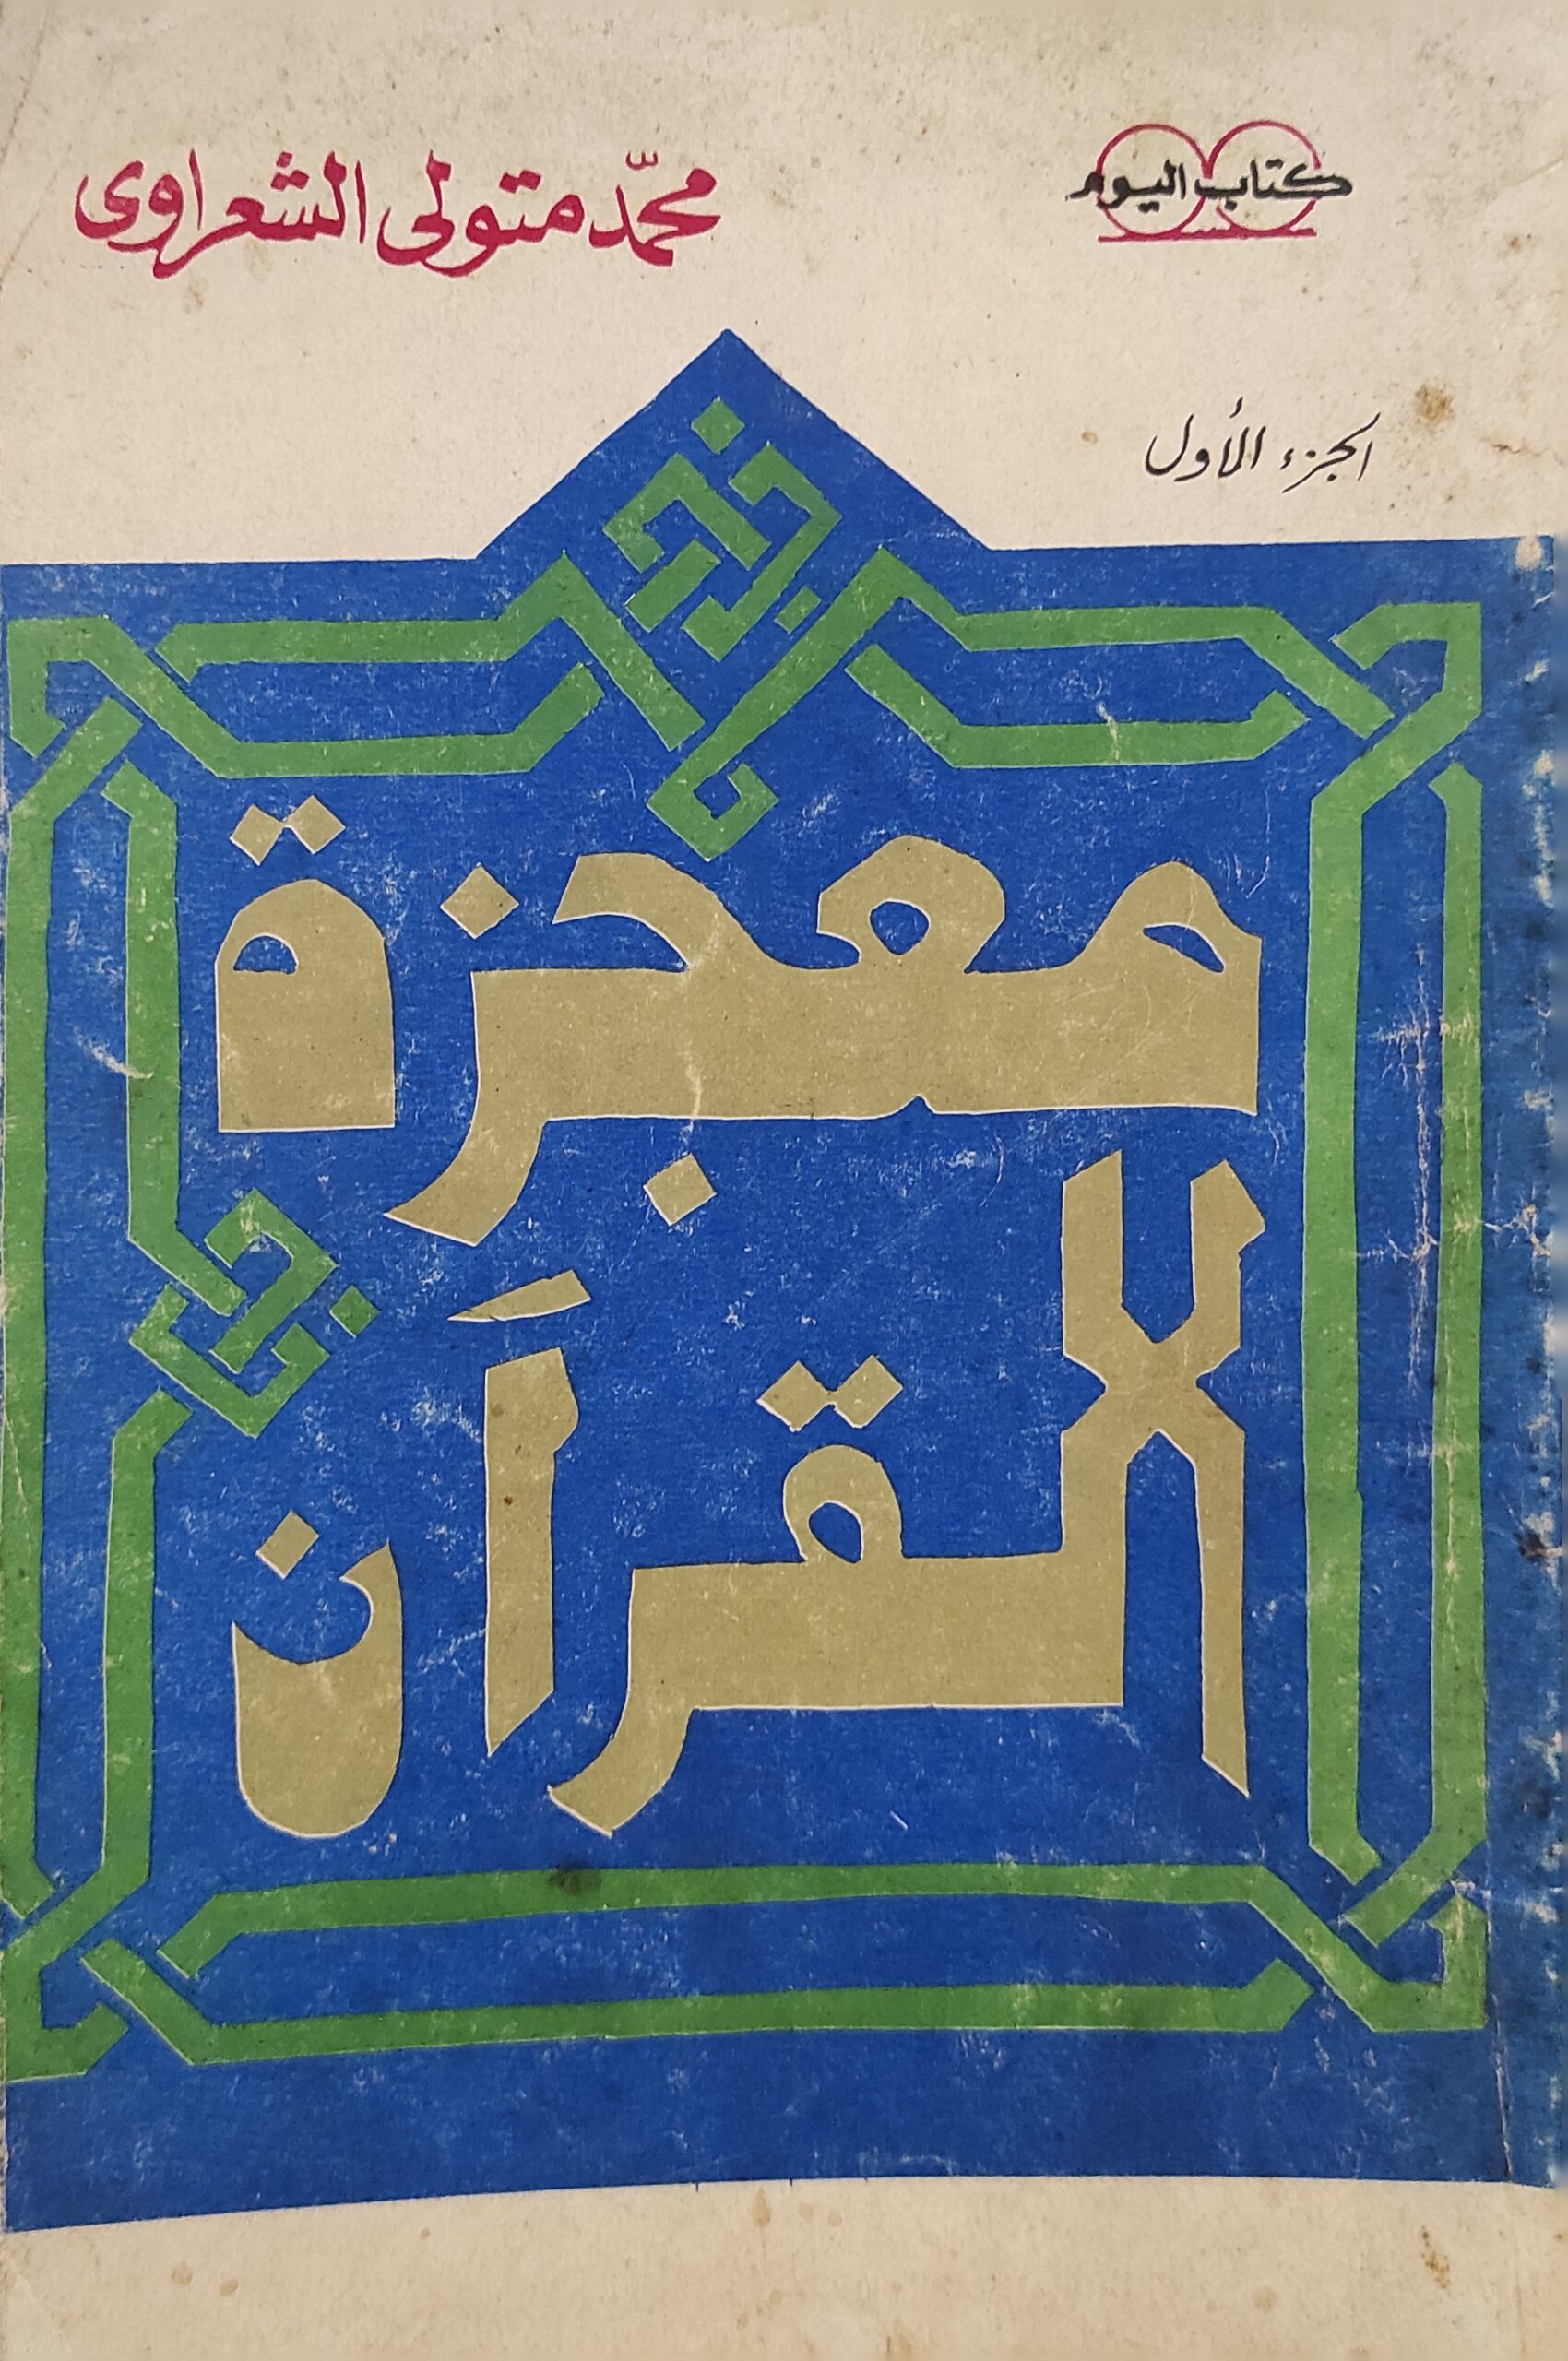 كتاب اليوم
محمّد متولى الشعراوى
الجزء الأول
معجزة
القرآن